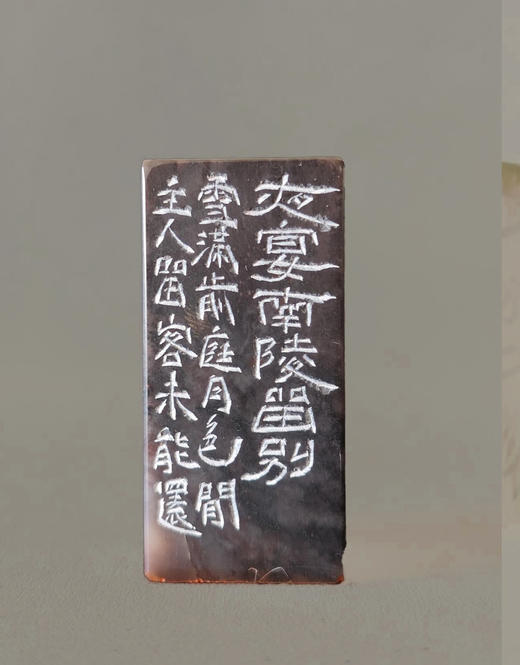 夜宴南陵留别
雪滿前庭月色閒
主人留客未能還